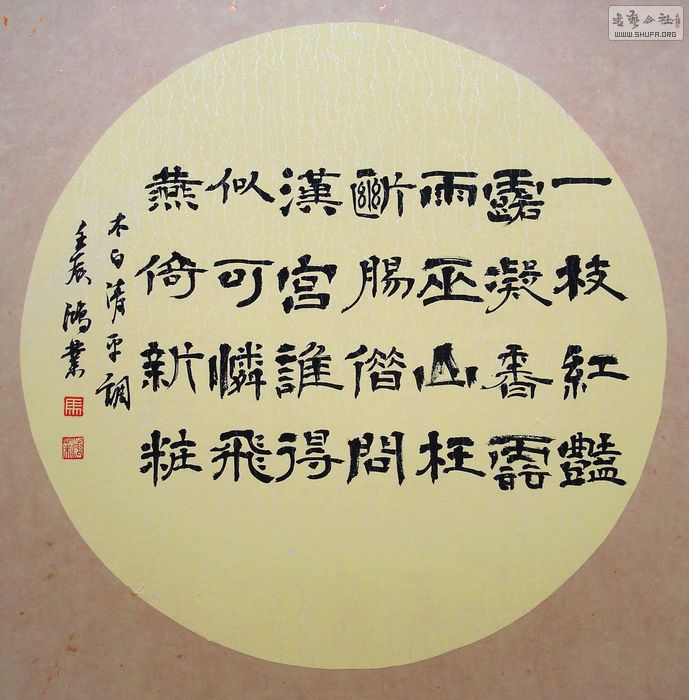 一枝紅豔
露凝香雲
雨巫山枉
斷腸借問
漢宮誰得
似可憐飛
燕倚新粧
李白清平調
壬辰鴻業
馬
書藝公社
WWW.SHUFA.ORG